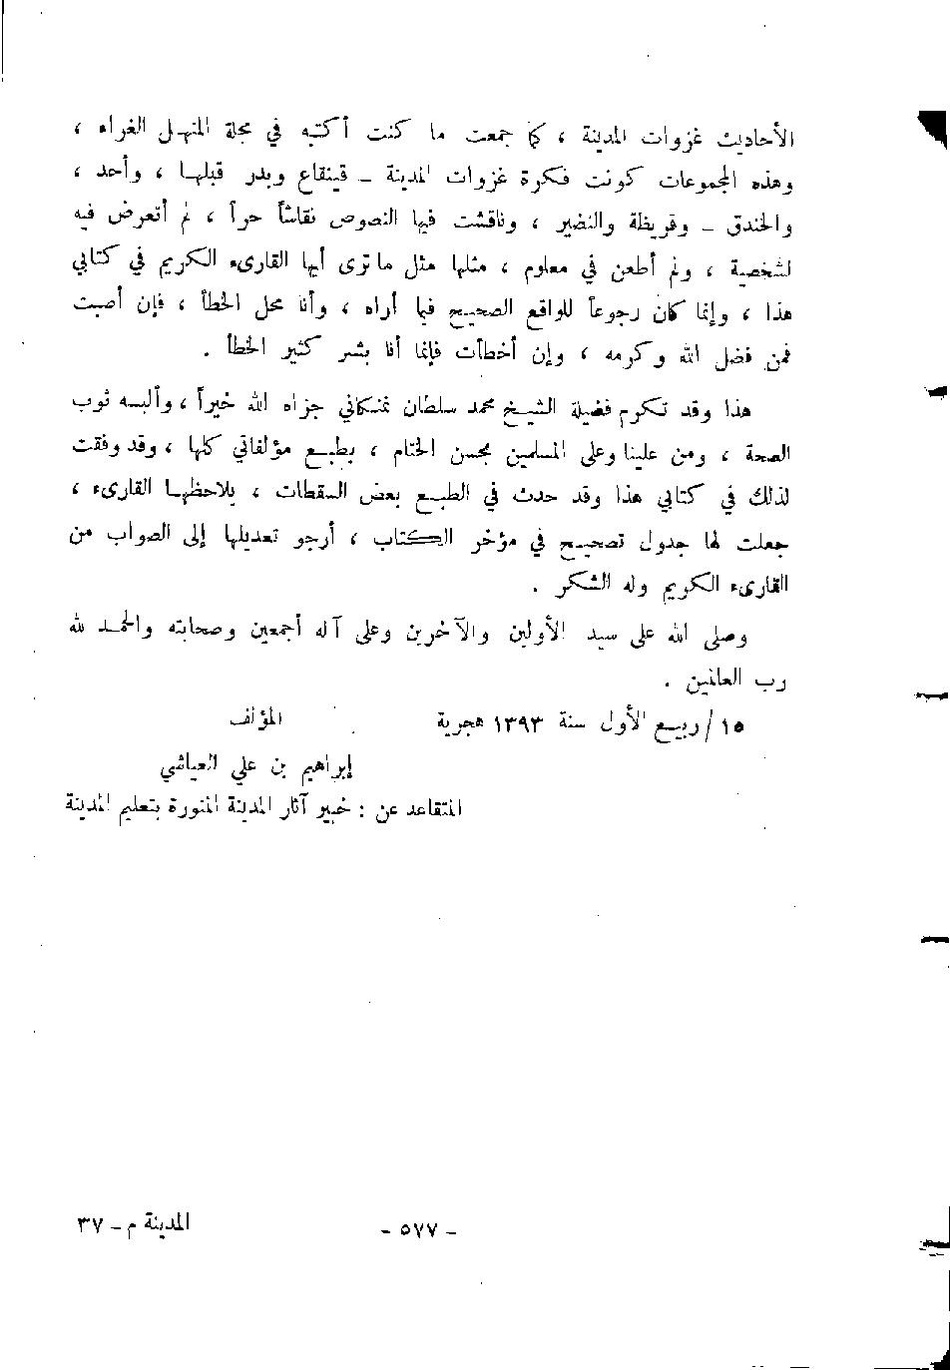 الأحاديث غزوات المدينة ، كما جمعت ما كنت أكتبه في مجلة المنهل الغراء ،
وهذه المجموعات كونت فكرة غزوات المدينة – قينقاع وبدر قبلها ، وأحد ،
والخندق – وقريظة والنضير ، وناقشت فيها النصوص نقاشاً حراً ، لم أتعرض فيه
لشخصية ، ولم أطعن في معلوم ، مثلها مثل ما ترى أيها القارىء الكريم في كتابي
هذا ، وإنما كان رجوعاً للواقع الصحيح فيما أراه ، وأنا محل الخطأ ، فإن أصبت
فمن فضل الله وكرمه ، وإن أخطأت فإنما أنا بشر كثير الخطأ .
هذا وقد تكرم فضيلة الشيخ محمد سلطان نمنكاني جزاه الله خيراً ، وألبسه ثوب
الصحة ، ومن علينا وعلى المسلمين بحسن الختام ، بطبع مؤلفاتي كلها ، وقد وفقت
لذلك في كتابي هذا وقد حدث في الطبع بعض السقطات ، يلاحظها القارىء ،
جعلت لها جدول تصحيح في مؤخر الكتاب ، أرجو تعديلها إلى الصواب من
القارىء الكريم وله الشكر .
وصلى الله على سيد الأولين والآخرين وعلى آله أجمعين وصحابته والحمد لله
رب العالمين .
١٥/ ربيع الأول سنة ١٣٩٣ هجرية المؤلف
إبراهيم بن علي العياشي
المتقاعد عن : خبير آثار المدينة المنورة بتعليم المدينة
– ٥٧٧ – المدينة م – ٣٧